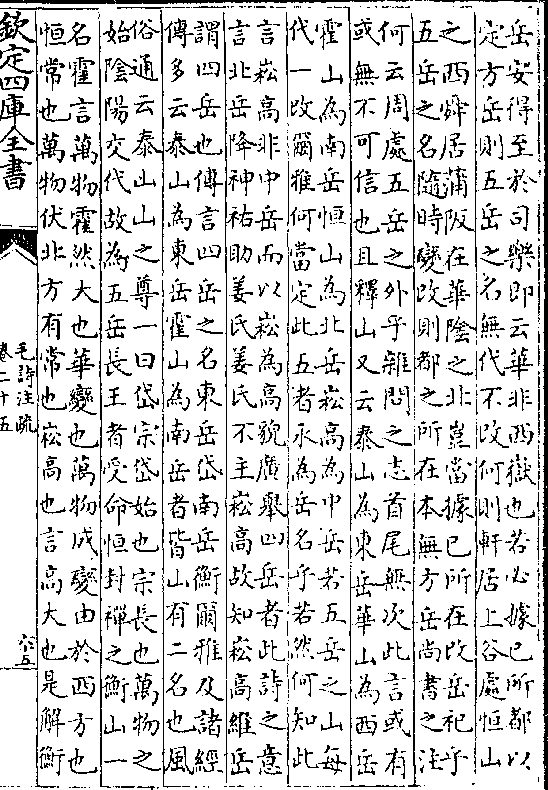 岳安得至於司樂即云華非西嶽也若必據已所都以
定方岳則五岳之名無代不改何則軒居上谷處恒山
之西舜居蒲阪在華陰之北豈當據已所在改岳祀乎
五岳之名隨時變改則都之所在本無方岳尚書之注
何云周處五岳之外乎雜問之志首尾無次此言或有
或無不可信也且釋山又云泰山為東岳華山為西岳
霍山為南岳恒山為北岳崧高為中岳若五岳之山每
代一改爾雅何當定此五者永為岳名乎若然何知此
言崧高非中岳而以崧為高貌廣舉四岳者此詩之意
言北岳降神祐助姜氏姜氏不主崧高故知崧高維岳
謂四岳也傳言四岳之名東岳岱南岳衡爾雅及諸經
傳多云泰山為東岳霍山為南岳者皆山有二名也風
俗通云泰山山之尊一曰岱宗岱始也宗長也萬物之
始陰陽交代故為五岳長王者受命恒封禪之衡山一
名霍言萬物霍然大也華變也萬物成變由於西方也
恒常也萬物伏北方有常也崧高也言高大也是解衡
欽定四庫全書
毛詩注疏
卷二十五
六五